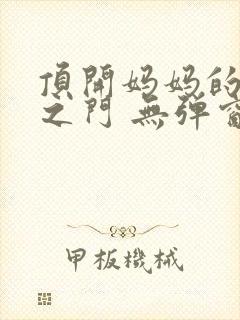 頂開妈妈的
之门 無弹窗
甲板機械